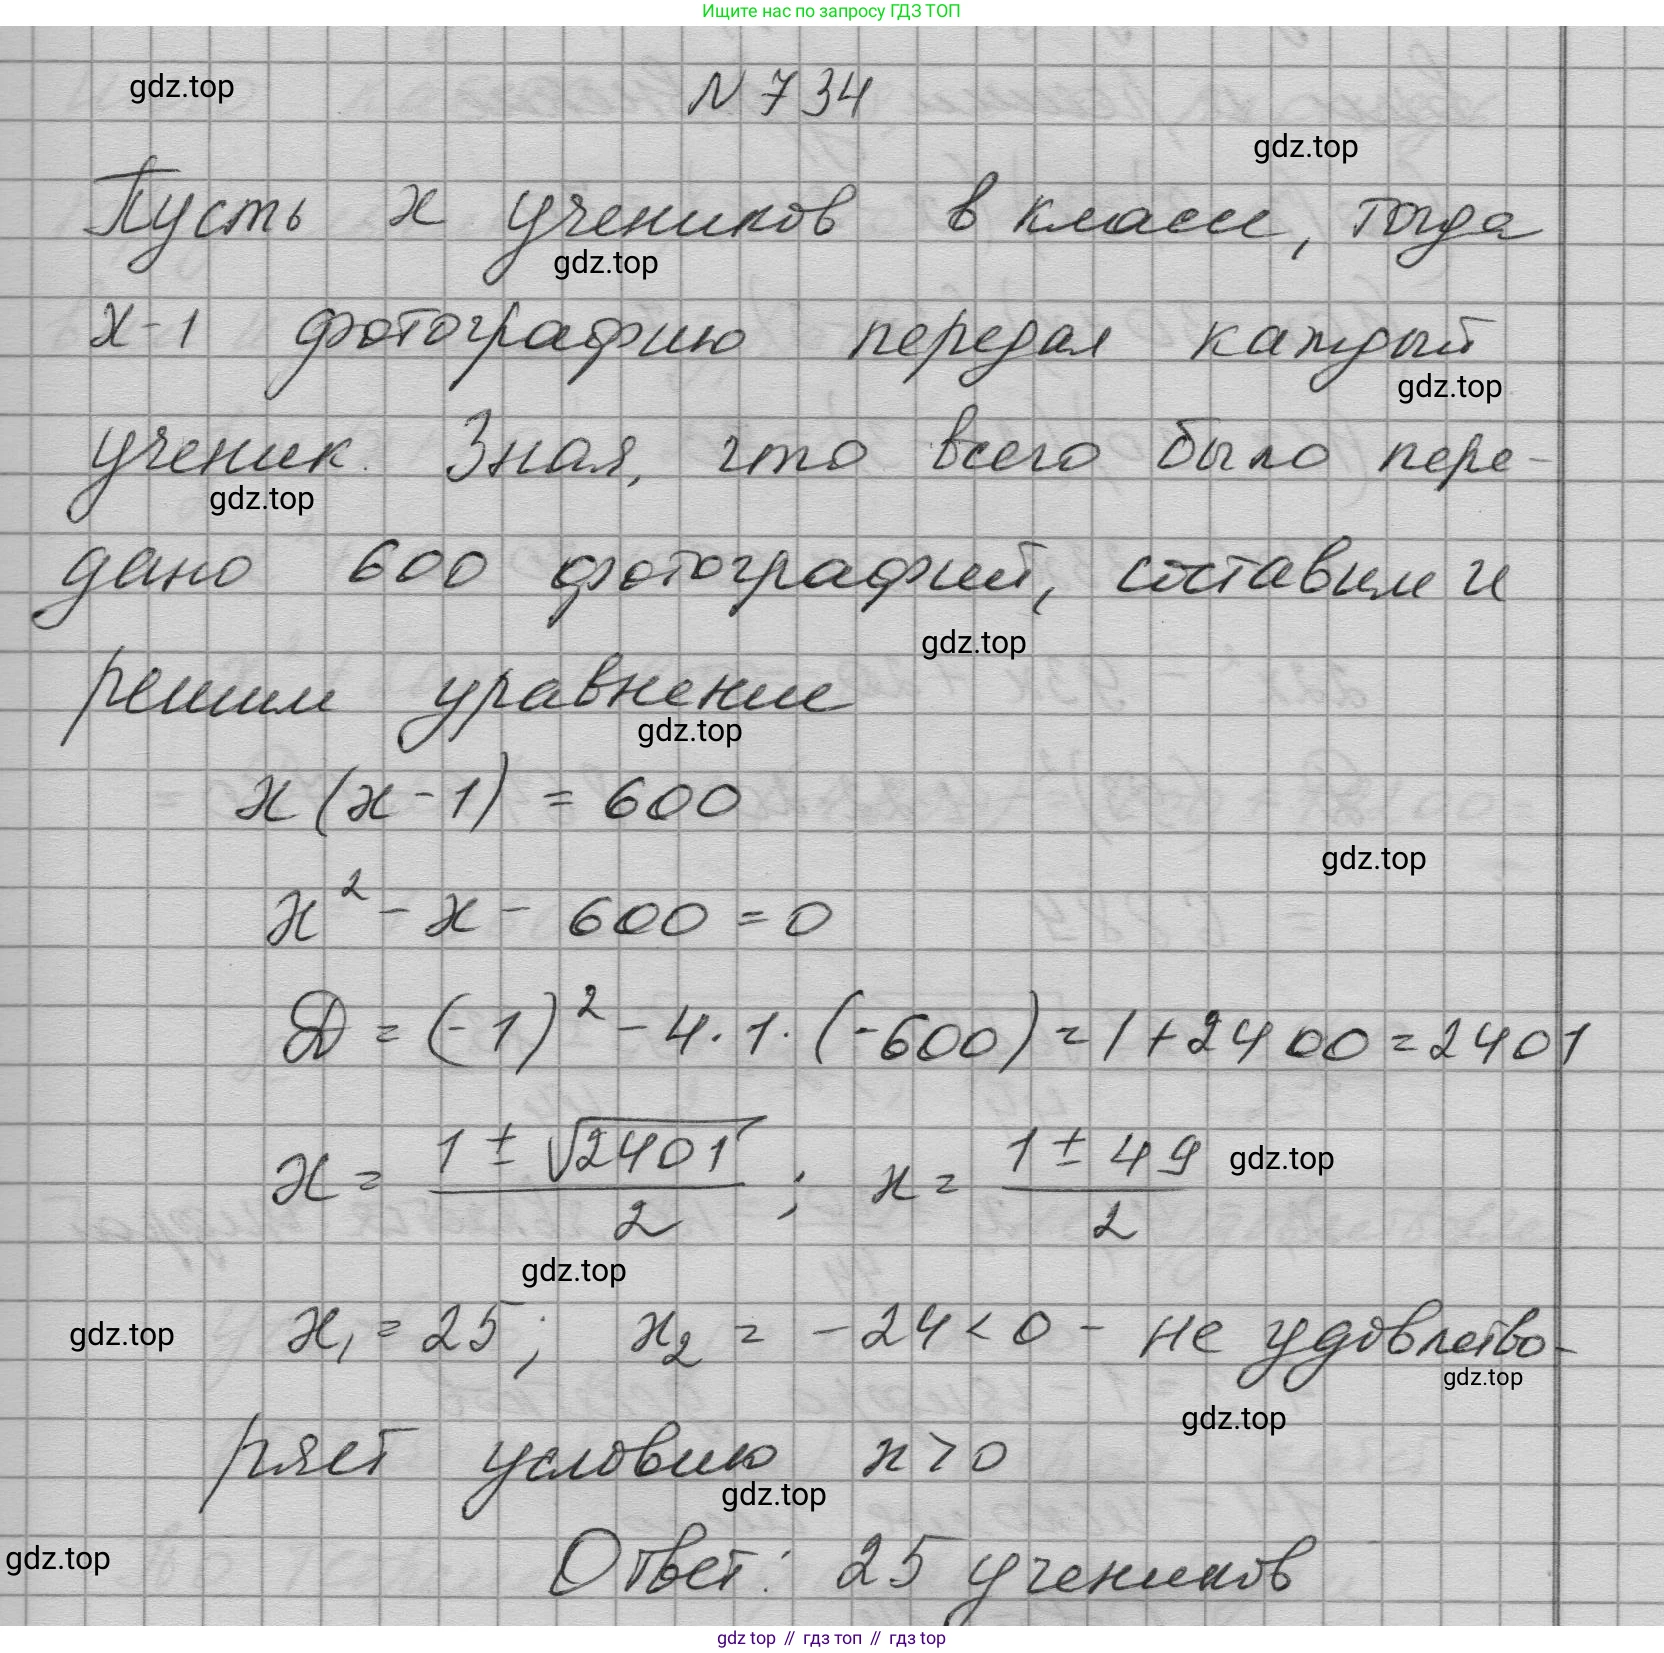 Ищите нас по запросу ГДЗ ТОП
gdz.top
N 734
gdz.top
Пусть x учеников в классе, тогда
gdz.top
x-1 фотографию передал каждый
gdz.top
ученик. Зная, что всего было пере-
gdz.top
дано 600 фотографий, составим и
gdz.top
решим уравнение
gdz.top
x(x-1) = 600
gdz.top
x² - x - 600 = 0
D = (-1)² - 4·1·(-600) = 1 + 2400 = 2401
x = (1 ± √2401)/2 ; x = (1 ± 49)/2 gdz.top
gdz.top
gdz.top x₁ = 25; x₂ = -24 < 0 - не удовлетво-
gdz.top
gdz.top
ряет условию x > 0
gdz.top
gdz.top Ответ: 25 учеников
gdz top // гдз топ // гдз top